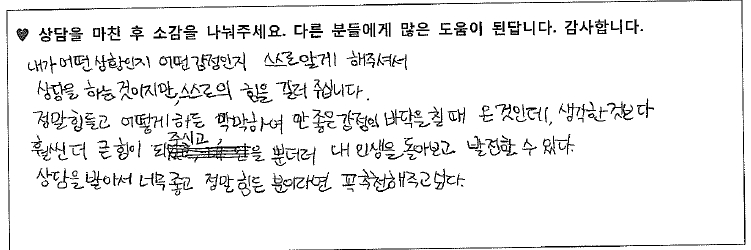 ♥ 상담을 마친 후 소감을 나눠주세요. 다른 분들에게 많은 도움이 된답니다. 감사합니다.
내가 어떤 상황인지 어떤 감정인지 스스로 알게 해주셔서
상담을 하는 것이지만, 스스로의 힘을 길러 줍니다.
정말 힘들고 어떻게 하든 막막하여 안 좋은 감정의 바닥을 칠 때 온 것인데, 생각한 것보다
훨씬 더 큰 힘이 되주시고, 을 뿐더러 내 인생을 돌아보고 발전할 수 있다.
상담을 받아서 너무 좋고 정말 힘든 분이라면 꼭 추천해주고 싶다.